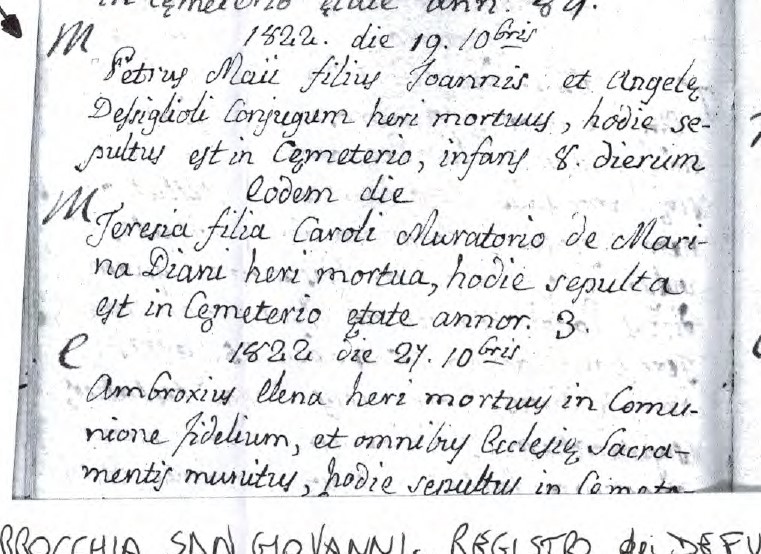 in Cęmeterio ętate ann. 84.
M 1822. die 19. 10bris
Petrus Maii filius Joannis et Angelę
Dessiglioli Conjugum heri mortuus, hodie se-
pultus est in Cęmeterio, infans 8. dierum
M Eodem die
Teresia filia Caroli Muratorio de Mari-
na Diani heri mortua, hodie sepulta
est in Cęmeterio ętate annor. 3.
E 1822. die 27. 10bris
Ambroxius Elena heri mortuus in Comu-
nione fidelium, et omnibus Ecclesię Sacra-
mentis munitus, hodie sepultus in Cęmete-
RROCCHIA SAN GIOVANNI. REGISTRO dei DEFU